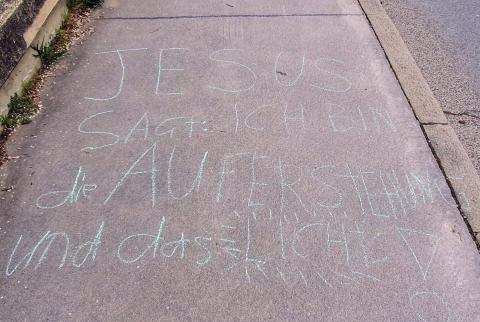 JESUS
SAGT: ICH BIN
die AUFERSTEHUNG
und das